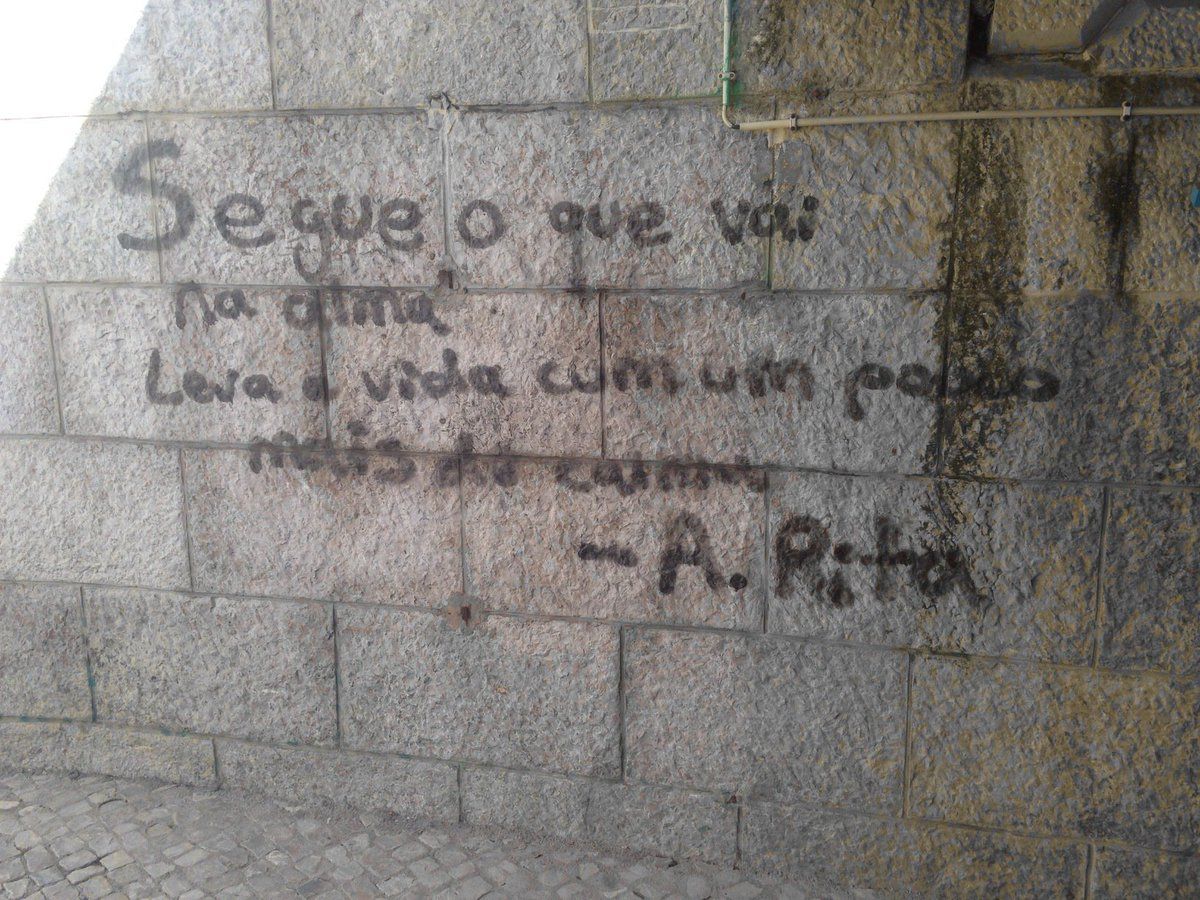 Segue o que vai
na alma
Leva a vida cum um pouco
mais de calma
- A. Rita